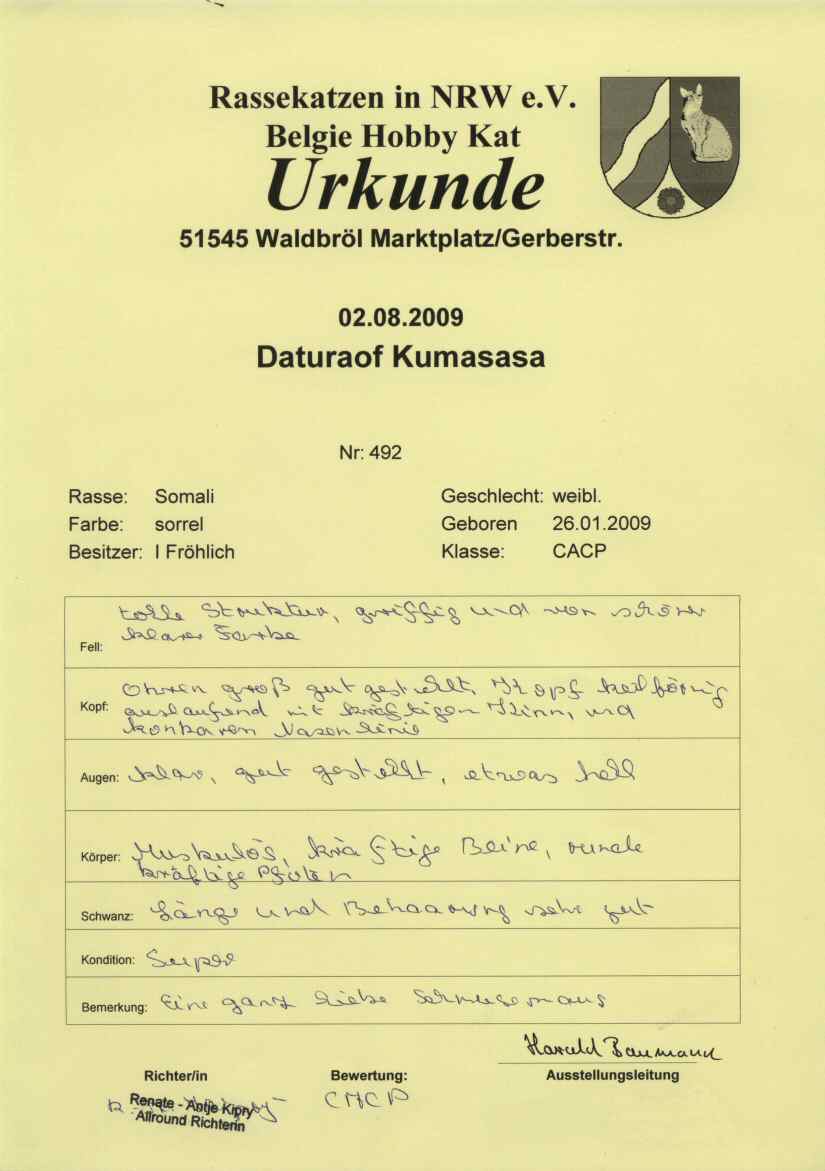 Rassekatzen in NRW e.V.
Belgie Hobby Kat
Urkunde
51545 Waldbröl Marktplatz/Gerberstr.
02.08.2009
Daturaof Kumasasa
Nr: 492
Rasse: Somali Geschlecht: weibl.
Farbe: sorrel Geboren 26.01.2009
Besitzer: I Fröhlich Klasse: CACP
tolle Struktur, griffig und von schöner
Fell: klarer Farbe
Ohren groß gut gestellt, Kopf keilförmig
Kopf: auslaufend mit kräftigen Kinn, und
konkaven Nasenlinie
Augen: klar, gut gestellt, etwas hell
Körper: Muskulös, kräftige Beine, runde
kräftige Pfoten
Schwanz: Länge und Behaarung sehr gut
Kondition: Super
Bemerkung: Eine ganz liebe Schmusemaus
Harald Baumann
Richter/in Bewertung: Ausstellungsleitung
Renate - Antje Kipry CACP
Allround Richterin